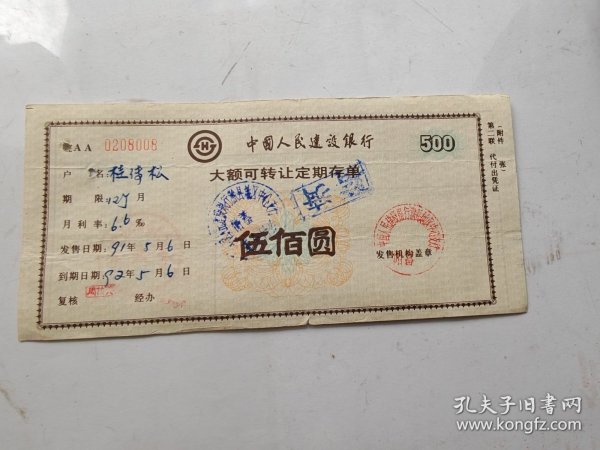 AA 0208008
中国人民建设银行
500
大额可转让定期存单
户 名:
期 限: 12个月
月利率: 6.6‰
发售日期: 91年5月6日
到期日期: 92年5月6日
复核 经办
伍佰圆
发售机构盖章
第二联 代付出凭证
(附件 张)
孔夫子旧书网
www.kongfz.com